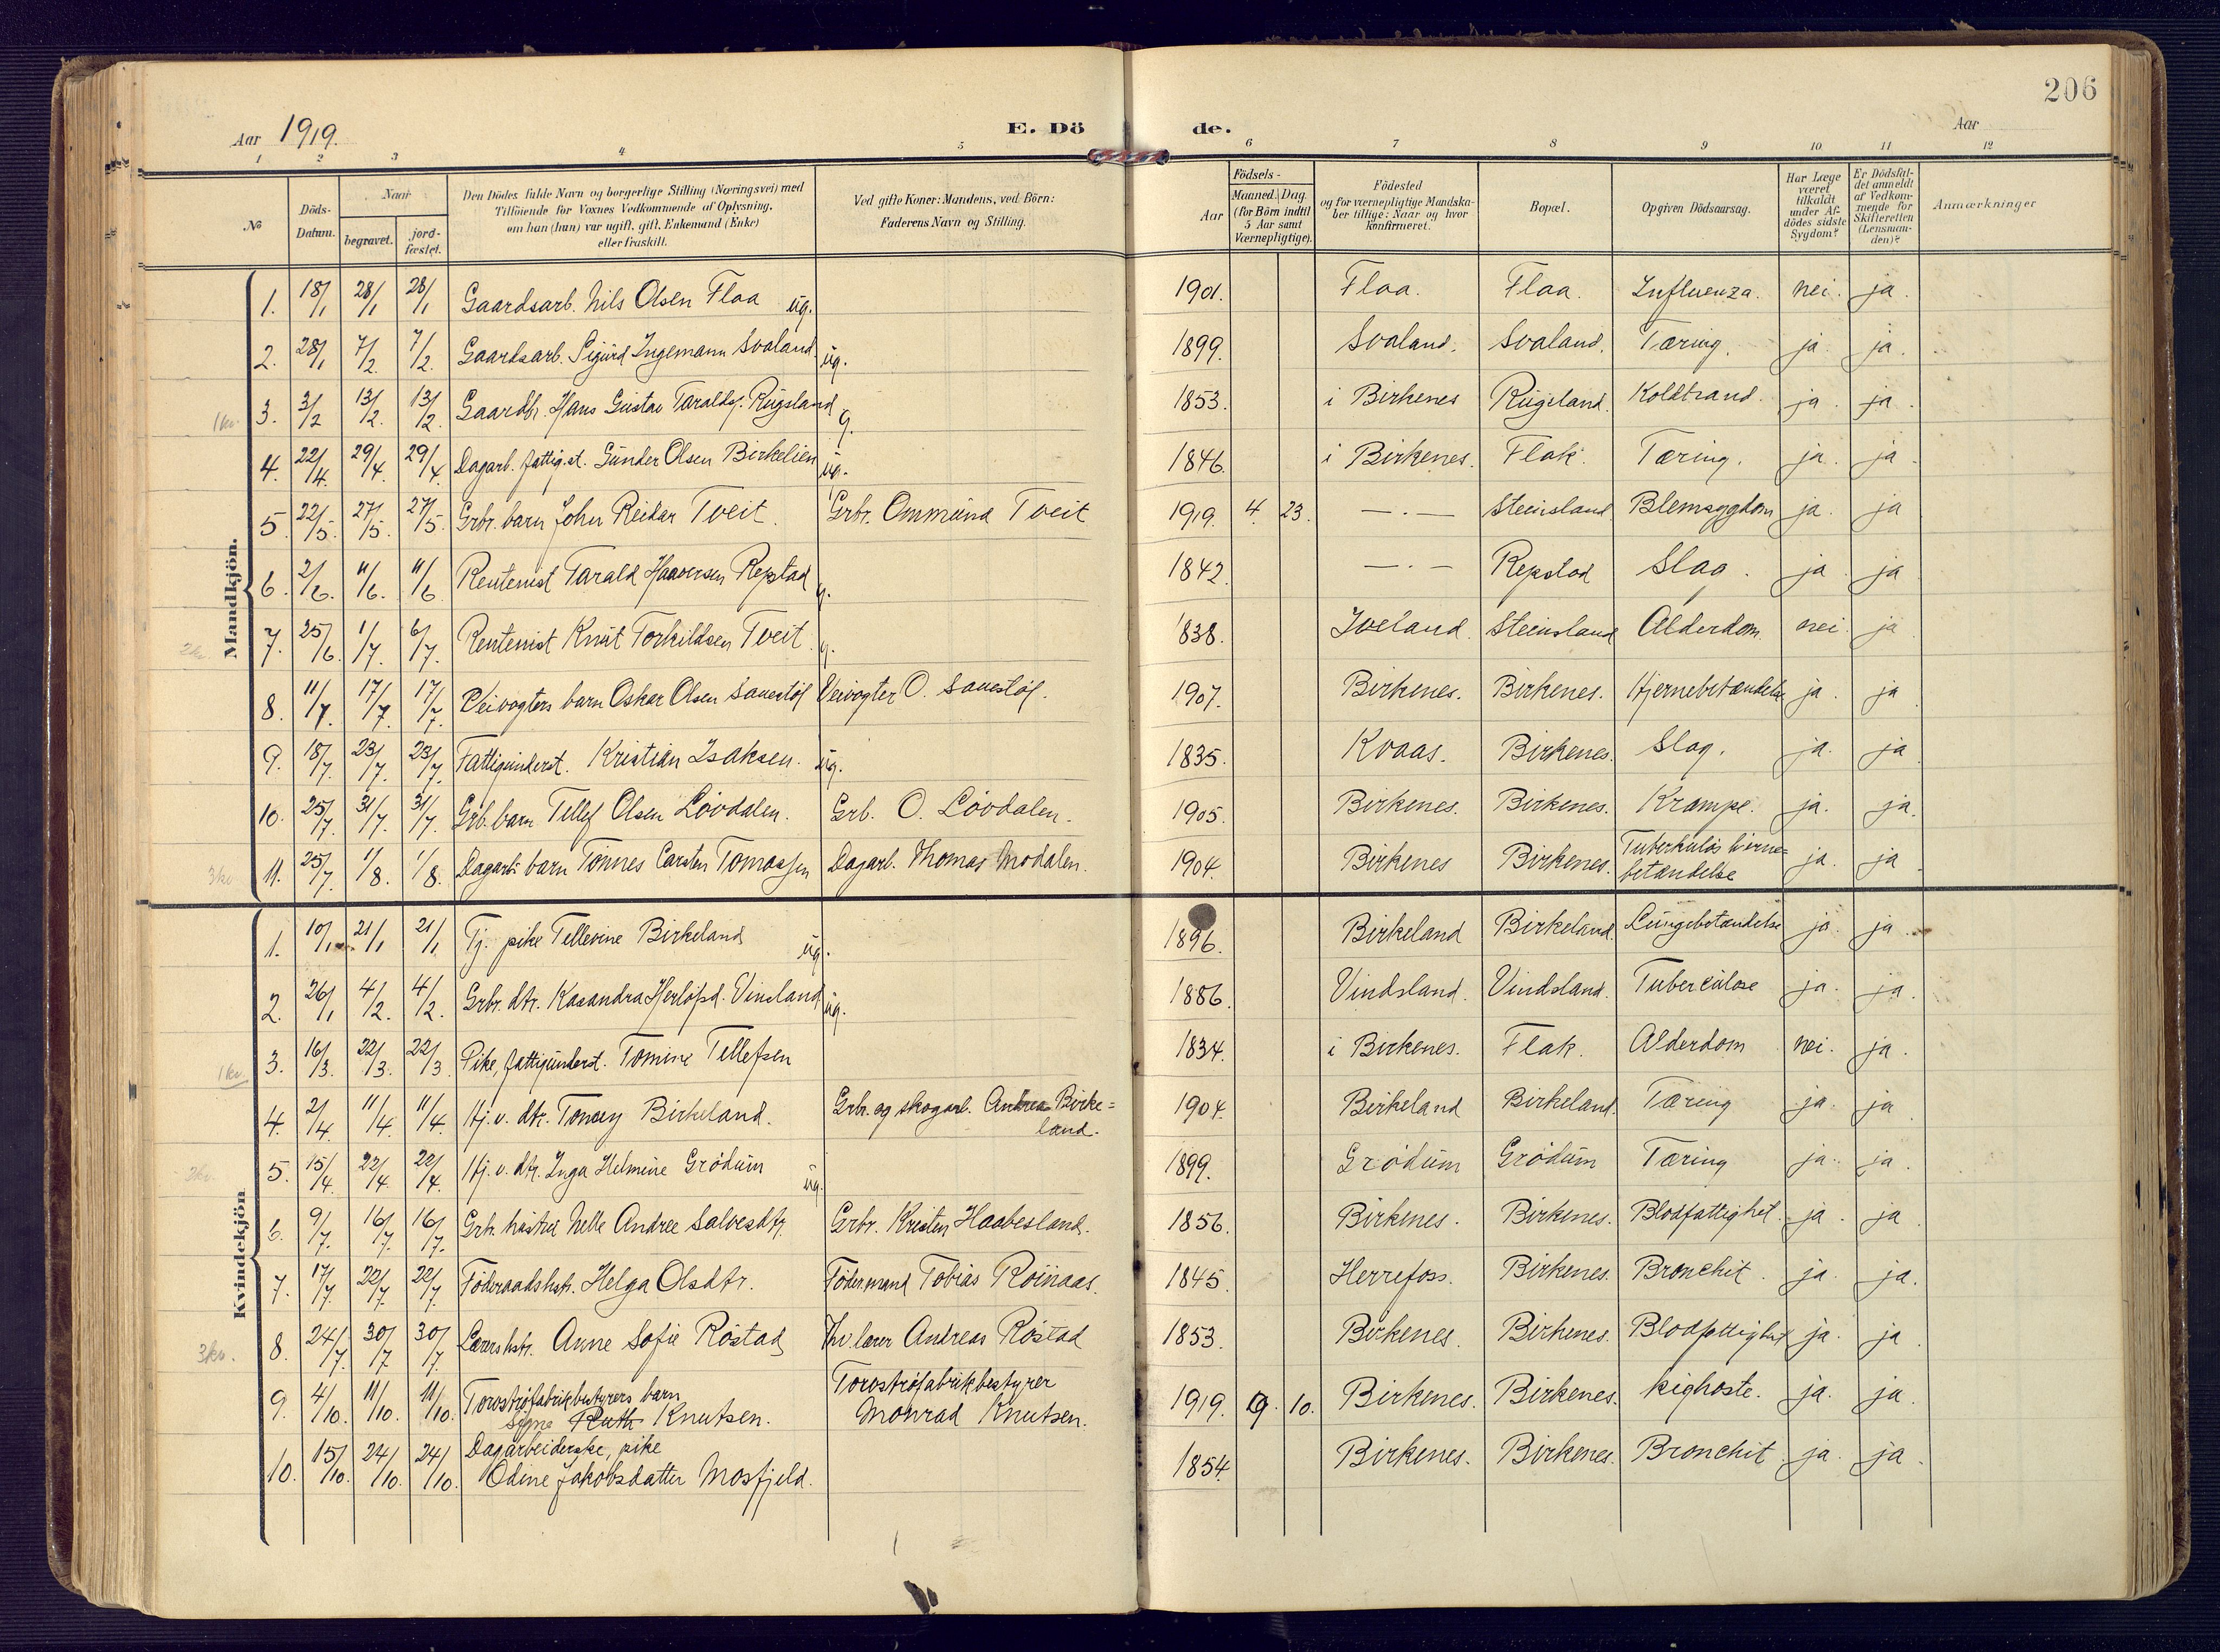 206
Aar 1919. E. Dö de. Aar
1 2 3 4 5 6 7 8 9 10 11 12
№
Döds-Datum.
Naar
begravet.
jord-fæstet.
Den Dödes fulde Navn og borgerlige Stilling (Næringsvei) med
Tilföiende for Voxnes Vedkommende af Oplysning,
om han (hun) var ugift, gift, Enkemand (Enke)
eller fraskilt.
Ved gifte Koner: Mandens, ved Börn:
Faderens Navn og Stilling.
Födsels-
Aar
Maaned. Dag.
(for Börn indtil
5 Aar samt
Værnepligtige).
Födested
og for værnepligtige Mandska-
ber tillige: Naar og hvor
konfirmeret.
Bopæl.
Opgiven Dödsaarsag.
Har Læge
været
tilkaldt
under Af-
dödes sidste
Sygdom?
Er Dödsfal-
det anmeldt
af Vedkom-
mende for
Skifteretten
(Lensman-
den)?
Anmærkninger
Mandkjön.
1. 18/1 28/1 28/1 Gaardsarb. Nils Olsen Flaa ug. 1901. Flaa. Flaa. Influenza. nei. ja.
2. 28/1 7/2 7/2. Gaardsarb. Sigurd Ingemann Svaland ug. 1899. Svaland. Svaland. Tæring. ja. ja.
1 kv. 3. 3/2 13/2. 13/2. Gaardbr. Hans Gustav Taraldsf. Rugsland g. 1853. i Birkenes Rugsland. Koldbrand. ja. ja.
4. 22/4. 29/4. 29/4. Dagarb. fattig.st. Gunder Olsen Birkelien ug. 1846. i Birkenes. Flak. Tæring. ja. ja.
5. 22/5. 27/5. 27/5. Grbr. barn John Reidar Tveit. Grbr. Ommund Tveit 1919. 4. 23. — . — Steinsland Blemsygdom ja. ja
6. 2/6. 11/6. 11/6 Rentenist Tarald Haaversen Repstad g. 1842. — . — Repstad Slag. ja ja
2 kv. 7. 25/6. 1/7. 6/7. Rentenist Knut Torkildsen Tveit. g. 1838. Iveland. Steinsland Alderdom. nei. ja
8. 11/7. 17/7. 17/7. Veivogters barn Oskar Olsen Sauestöl Veivogter O. Sauestöl. 1907. Birkenes. Birkenes. Hjernebetændelse ja. ja
9. 18/7. 23/7. 23/7. Fattigunderst. Kristian Isaksen. ug. 1835. Kvaas. Birkenes. Slag. ja. ja
10. 25/7. 31/7. 31/7. Grb. barn Tellef Olsen Lövdalen. Grb. O. Lövdalen. 1905. Birkenes. Birkenes. Krampe. ja. ja.
3 kv. 11. 25/7. 1/8. 1/8. Dagarb. barn Tönnes Carsten Tomassen Dagarb. Thomas Modalen. 1904. Birkenes Birkenes. Tuberkulös hjerne=
betændelse ja. ja
Kvindekjön
1. 10/1 21/1 21/1 Tj. pike Tellevine Birkeland ug. 1896. Birkeland Birkeland. Lungebetændelse ja. ja.
2. 26/1 4/2. 4/2. Grbr. dtr. Kasandra Herlofsd. Vinsland ug. 1886. Vindsland. Vindsland. Tuberculose ja. ja.
1 kv. 3. 16/3. 22/3. 22/3 Pike, fattigunderst. Tomine Tellefsen 1834. i Birkenes. Flak. Alderdom nei. ja.
4. 2/4. 11/4. 11/4. Hj. v. dtr. Birkeland. Grbr. og skogarb. Andreas Birke=
land. 1904. Birkeland Birkeland. Tæring ja. ja
2 kv. 5. 15/4. 22/4. 22/4. Hj. v. dtr. Inga Helmine Grödum ug. 1899. Grödum Grödum Tæring ja. ja.
6. 9/7. 16/7. 16/7. Grbr. hustru Nelle Andree Salvesdtr. Grbr. Kristen Haabesland. 1856. Birkenes. Birkenes. Blodfattighet. ja. ja.
7. 17/7. 22/7. 22/7. Föderaadshstr. Helga Olsdtr. Födermand Tobias Röinaas. 1845. Herrefoss. Birkenes. Bronchit. ja. ja.
3 kv. 8. 24/7. 30/7. 30/7. Lærers hstr. Anne Sofie Röstad Fhv. lærer Andreas Röstad 1853. Birkenes. Birkenes. Blodfattighet ja. ja
9. 4/10. 11/10. 11/10. Torvströfabrikbestyrers barn
Signe Ruth Knutsen. Torvströfabrikbestyrer
Monrad Knutsen. 1919. 9. 10. Birkenes. Birkenes. kighoste. ja. ja.
10. 15/10. 24/10. 24/10. Dagarbeiderske, pike
Odine Jakobsdatter Mosfjeld. 1854. Birkenes. Birkenes. Bronchit. ja. ja.